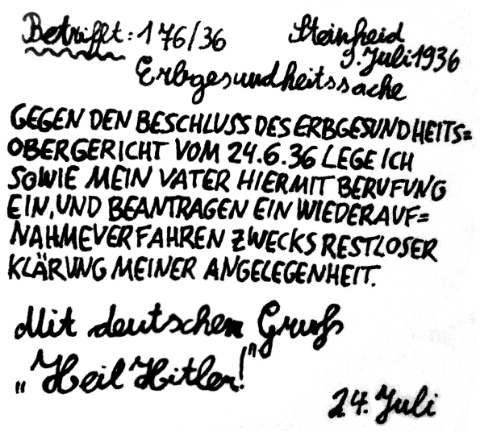 Betrifft: 176/36
Steinheid
9. Juli 1936
Erbgesundheitssache
GEGEN DEN BESCHLUSS DES ERBGESUNDHEITS=
OBERGERICHT VOM 24.6.36 LEGE ICH
SOWIE MEIN VATER HIERMIT BERUFUNG
EIN, UND BEANTRAGEN EIN WIEDERAUF=
NAHMEVERFAHREN ZWECKS RESTLOSER
KLÄRUNG MEINER ANGELEGENHEIT.
Mit deutschem Gruß
„Heil Hitler!"
24. Juli